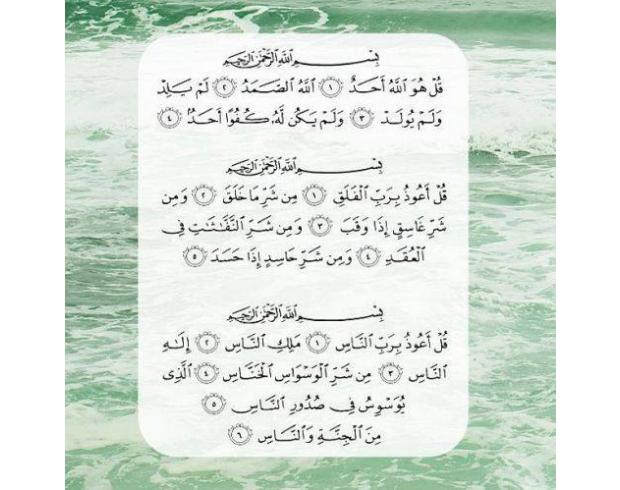 بِسْمِ ٱللَّهِ ٱلرَّحْمَٰنِ ٱلرَّحِيمِ
قُلْ هُوَ ٱللَّهُ أَحَدٌ ١ ٱللَّهُ ٱلصَّمَدُ ٢ لَمْ يَلِدْ
وَلَمْ يُولَدْ ٣ وَلَمْ يَكُن لَّهُۥ كُفُوًا أَحَدٌۢ ٤
بِسْمِ ٱللَّهِ ٱلرَّحْمَٰنِ ٱلرَّحِيمِ
قُلْ أَعُوذُ بِرَبِّ ٱلْفَلَقِ ١ مِن شَرِّ مَا خَلَقَ ٢ وَمِن
شَرِّ غَاسِقٍ إِذَا وَقَبَ ٣ وَمِن شَرِّ ٱلنَّفَّٰثَٰتِ فِى
ٱلْعُقَدِ ٤ وَمِن شَرِّ حَاسِدٍ إِذَا حَسَدَ ٥
بِسْمِ ٱللَّهِ ٱلرَّحْمَٰنِ ٱلرَّحِيمِ
قُلْ أَعُوذُ بِرَبِّ ٱلنَّاسِ ١ مَلِكِ ٱلنَّاسِ ٢ إِلَٰهِ
ٱلنَّاسِ ٣ مِن شَرِّ ٱلْوَسْوَاسِ ٱلْخَنَّاسِ ٤ ٱلَّذِى
يُوَسْوِسُ فِى صُدُورِ ٱلنَّاسِ ٥
مِنَ ٱلْجِنَّةِ وَٱلنَّاسِ ٦